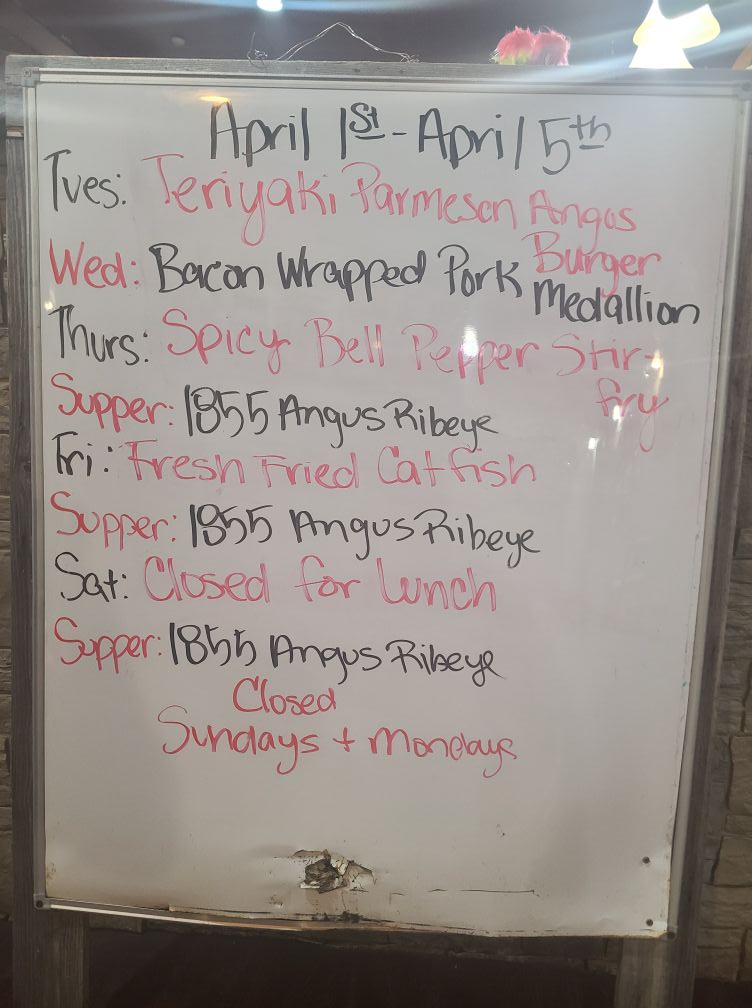 April 1st - April 5th
Tues: Teriyaki Parmesan Angus
Burger
Wed: Bacon Wrapped Pork
Medallion
Thurs: Spicy Bell Pepper Stir-
fry
Supper: 1855 Angus Ribeye
Fri: Fresh Fried Catfish
Supper: 1855 Angus Ribeye
Sat: Closed for Lunch
Supper: 1855 Angus Ribeye
Closed
Sundays + Mondays